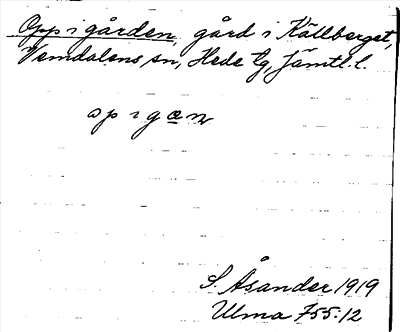 Opp i gården, gård i Källberget,
Vemdalens sn, Hede tg, Jämtl. l.
op i gæn
S. Åsander 1919
Ulma 755:12